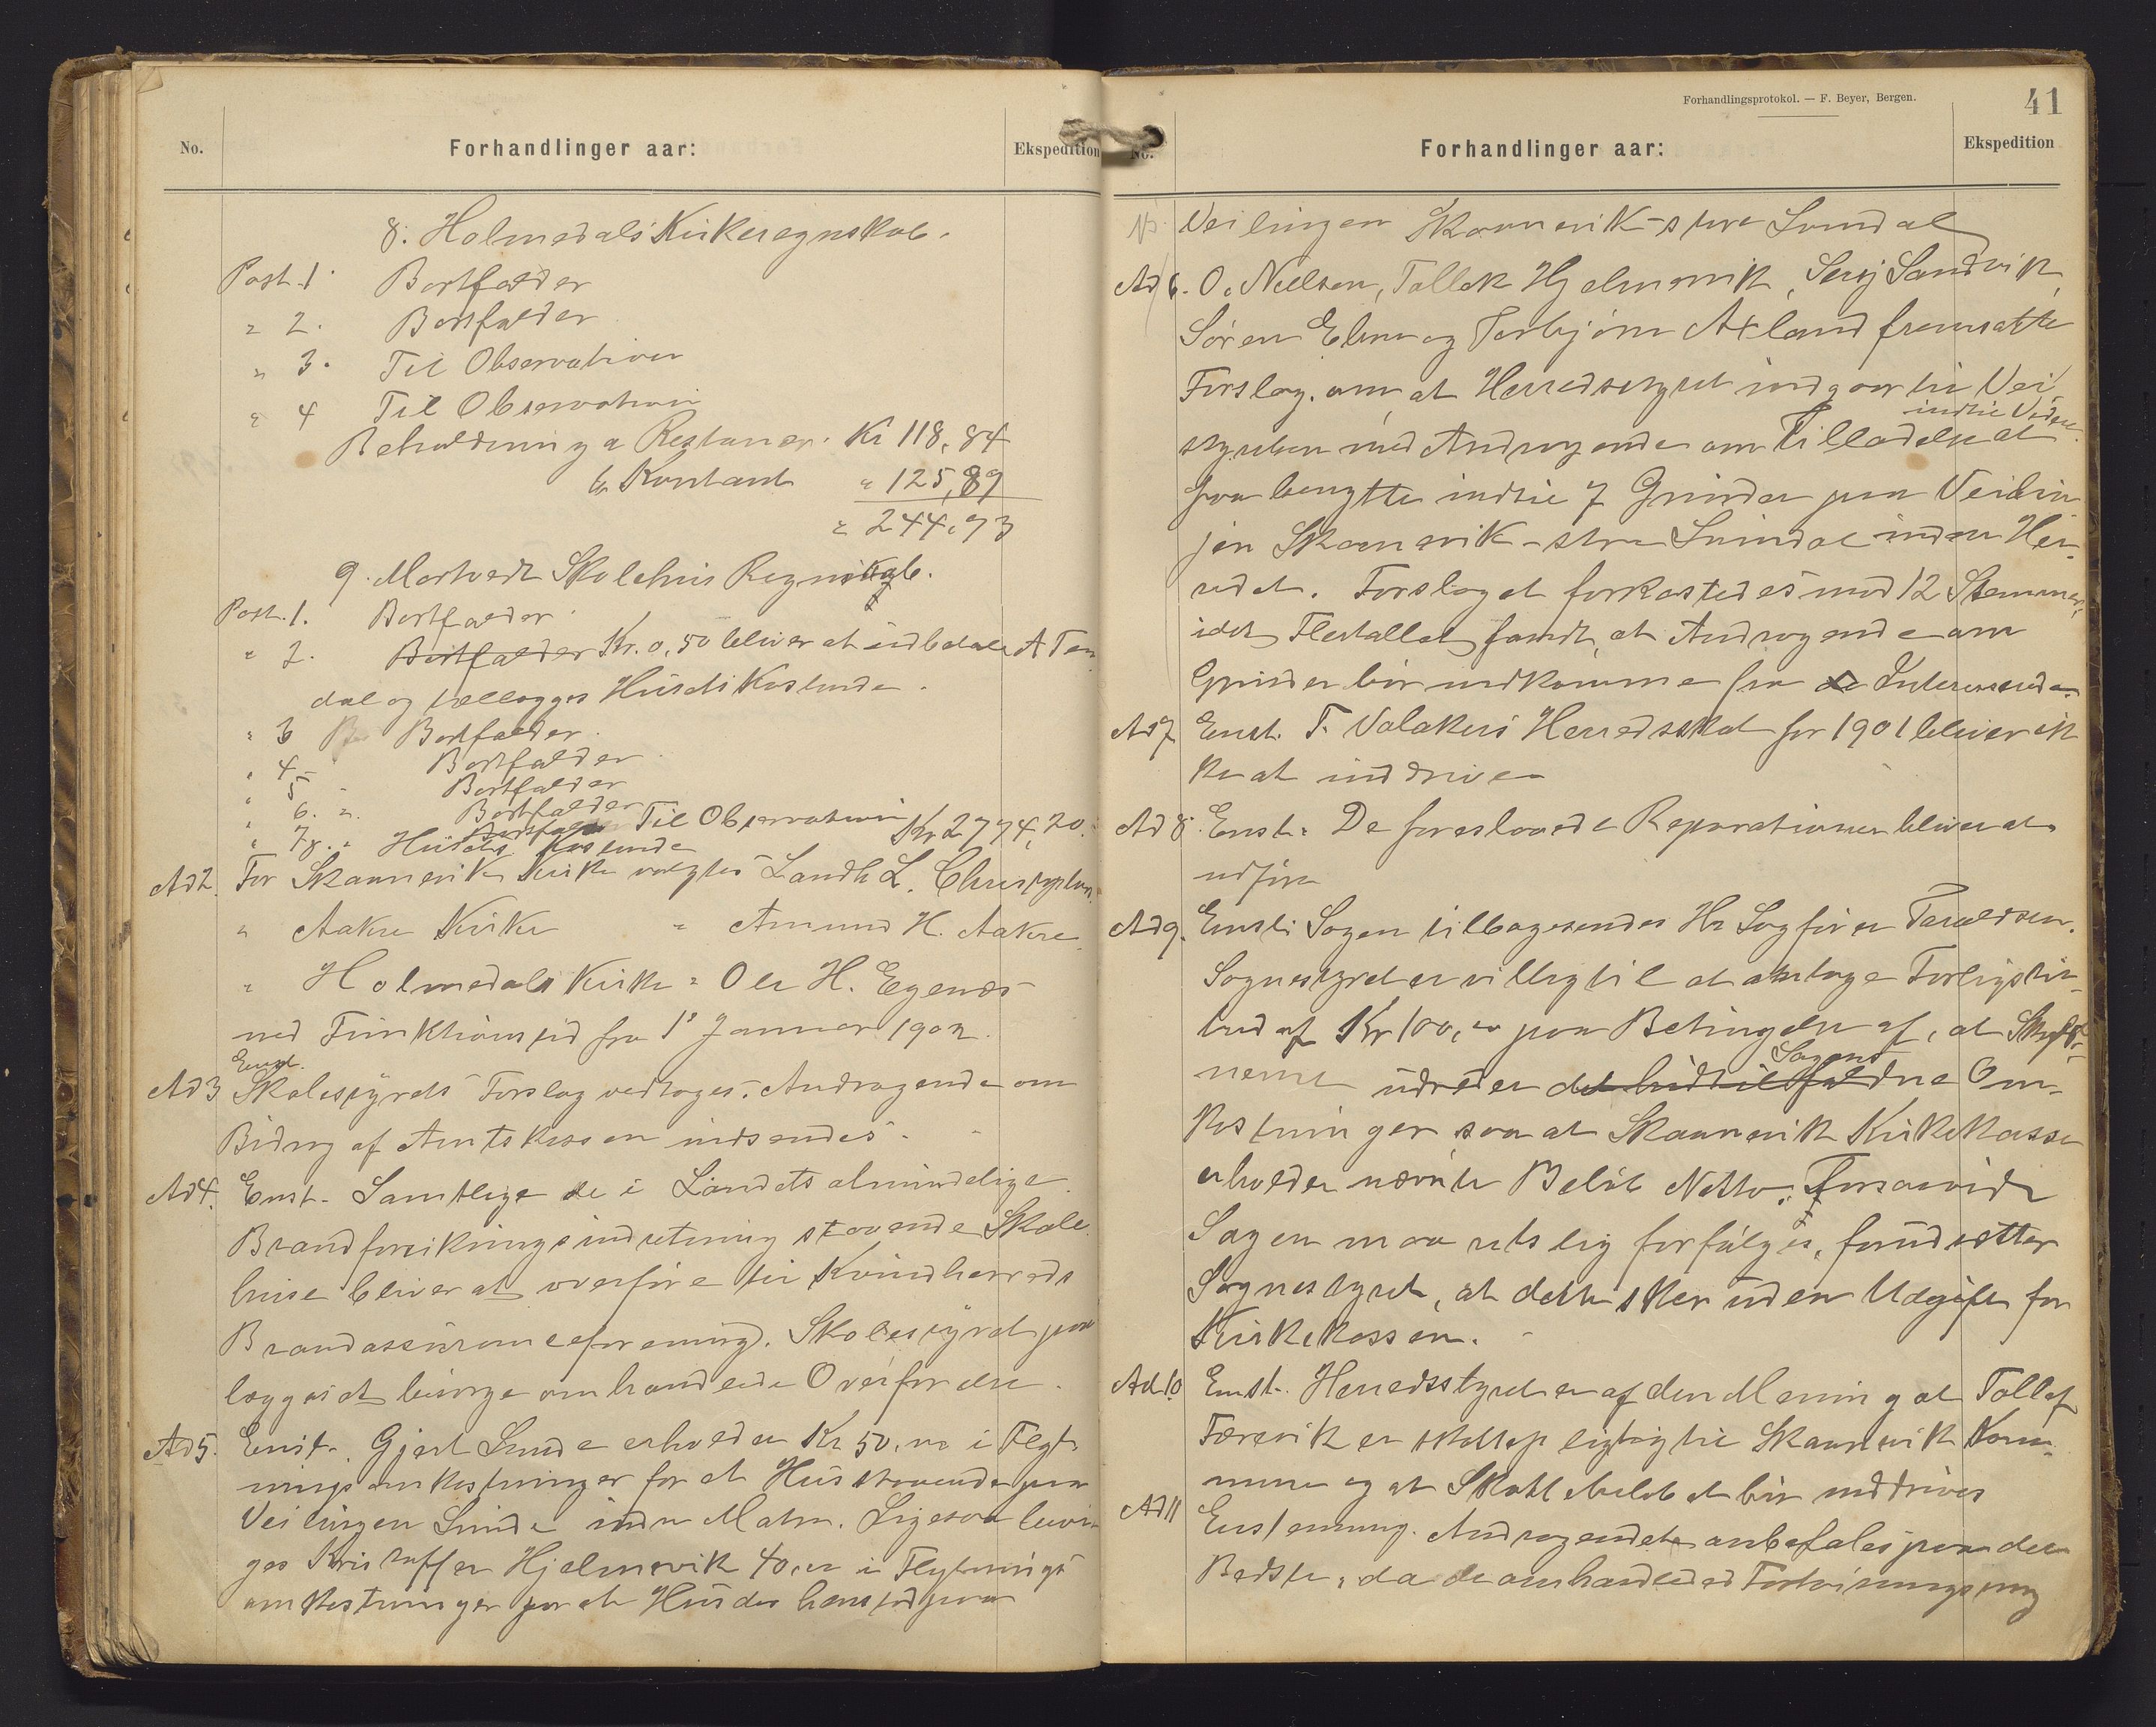 No.
Forhandlinger aar:
Ekspedition
8. Holmedals Kirkeregnskab.
Post. 1. Bortfalder
" 2. Bortfalder
" 3. Til Observation
" 4 Til Observation
Beholdning a Restancer. Kr 118,84
b, Kontant " 125,89
" 244,73
9. Mortvedt Skolehus Regnskab.
Post. 1. Bortfalder
" 2. Bortfalder Kr. 0,50 bliver at indbetale A Tun
dal og tillægges Husets Kostende.
" 3 Bortfalder.
" 4 - Bortfalder
" 5 " Bortfalder
" 6. " Bortfalder
" 7 " Bortfalder Til Observation
" 8. " Husets Kostende Kr 2774,20.
Ad 2. For Skaanevik Kirke valgtes Landh L. Christophersen
" Aakre Kirke " Amund H. Aakre
" Holmedals Kirke " Ole H. Egenæs
med Funktionstid fra 1ste Januar 1902.
Enst.
Ad 3 Skolestyrets Forslag vedtoges. Andragende om
Bidrag af Amtskassen indsendes.
Ad 4. Enst. Samtlige de i Landets almindelige
Brandforsikringsindretning staaende Skole
huse bliver at overføre til Kvindherreds
Brandassuranceforening. Skolestyret paa
lægges at besørge omhandlede Overførelse.
Ad 5. Enst. Gjert Sunde erholder Kr 50,00 i Flyt
ningsomkostninger for et Hus staaende paa
Veilinjen Sunde indre Matre. Ligesaa bevil
ges Kristoffer Hjelmevik 40,00 i Flytnings
omkostninger for et Hus des hensted paa
Forhandlingsprotokol. — F. Beyer, Bergen.
41
No.
Forhandlinger aar:
Ekspedition
Veilinjen Skaanevik - store Sundal
Ad 6. O. Nielsen, Tollek Hjelmevik, Serj Sandvik,
Søren Ebne og Torbjørn Axland fremsatte
Forslag om at Herredsstyret indgaar til Vei
indtil Videre
styrelsen med Andragende om Tilladelse at
faa benytte indtil 7 Grinder paa Veilin
jen Skaanevik - store Sundal inden Her-
redet. Forslaget forkastedes med 12 Stemmer,
idet Flertallet fandt, at Andragende om
Grinder bør indkomme fra de Interesserede.
Ad 7 Enst. T. Valakers Herredsskat for 1901 bliver ik
ke at inddrive
Ad 8. Enst. De foreslaaede Reparationer bliver at
udføre
Ad 9. Enst. Sagen tilbagesendes Hr Sagfører Taraldsen.
Sognestyret er villig til at antage Forligstil-
bud af Kr 100,00 paa Betingelse af, at Skyld-
Sagens
nerne udreder det hidtil faldne Om-
kostninger saa at Skaanevik Kirkekasse
erholder nævnte Beløb Netto. Forsaavidt
Sagen maa retslig forfølges, forudsetter
Sognestyret, at dette sker uden Udgift for
Kirkekassen.
Ad 10 Enst. Herredsstyret er af den Mening at Tollef
Færevik er skattepligtig til Skaanevik Kom-
mune og at Skattebeløbet bør inddrives
Ad 11 Enstemmig. Andragendet anbefales paa det
Bedste, da de omhandlede